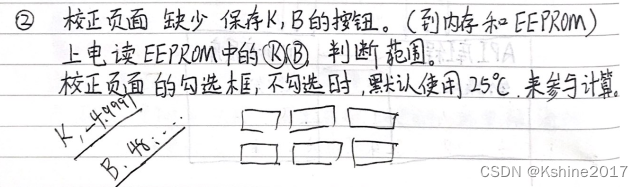 ② 校正页面 缺少 保存K,B的按钮。(到内存和EEPROM)
上电读EEPROM中的ⓀⒷ,判断范围。
校正页面的勾选框,不勾选时,默认使用25℃.来参与计算。
K,-4.9991
B.48:...
CSDN @Kshine2017